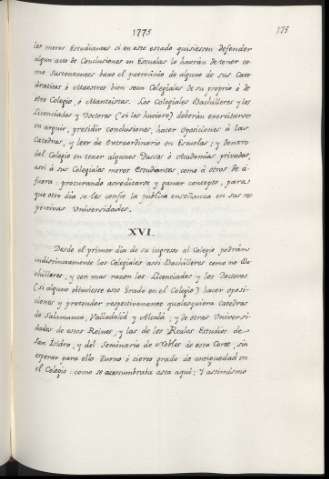 1775
175
los meros Estudiantes si en este estado quisiessen defender
algun acto de Conclusiones en Escuelas lo havrán de tener co-
mo Sustentantes baxo el patrocinio de alguno de sus Cate-
draticos ó Maestros bien sean Colegiales de su propio ó de
otro Colegio, ó Manteistas. Los Colegiales Bachilleres y los
Licenciados y Doctores (si los huviere) deberán exercitarse
en arguir, presidir conclusiones, hacer oposiciones á las
Catedras, y leer de extraordinario en Escuelas; y dentro
del Colegio en tener algunos Pasos ó Academias privadas,
asi á sus Colegiales meros Estudiantes como á otros de a-
fuera; procurando acreditarse y ganar concepto, para
que otro dia se les confie la publica enseñanza en sus res-
pectivas Universidades.
XVI.
Desde el primer dia de su ingreso al Colegio podrán
indistintamente los Colegiales assi Bachilleres como no Ba-
chilleres, y con mas razon los Licenciados y los Doctores
(si alguno obtuviere este Grado en el Colegio) hacer oposi-
ciones y pretender respectivamente qualesquiera Catedras
de Salamanca, Valladolid y Alcalá; y de otras Universi-
dades de estos Reinos, y las de los Reales Estudios de
San Isidro, y del Seminario de Nobles de esta Corte, sin
esperar para ello Turno ó cierto grado de antiguedad en
el Colegio: como se acostumbraba asta aqui: Y assimismo